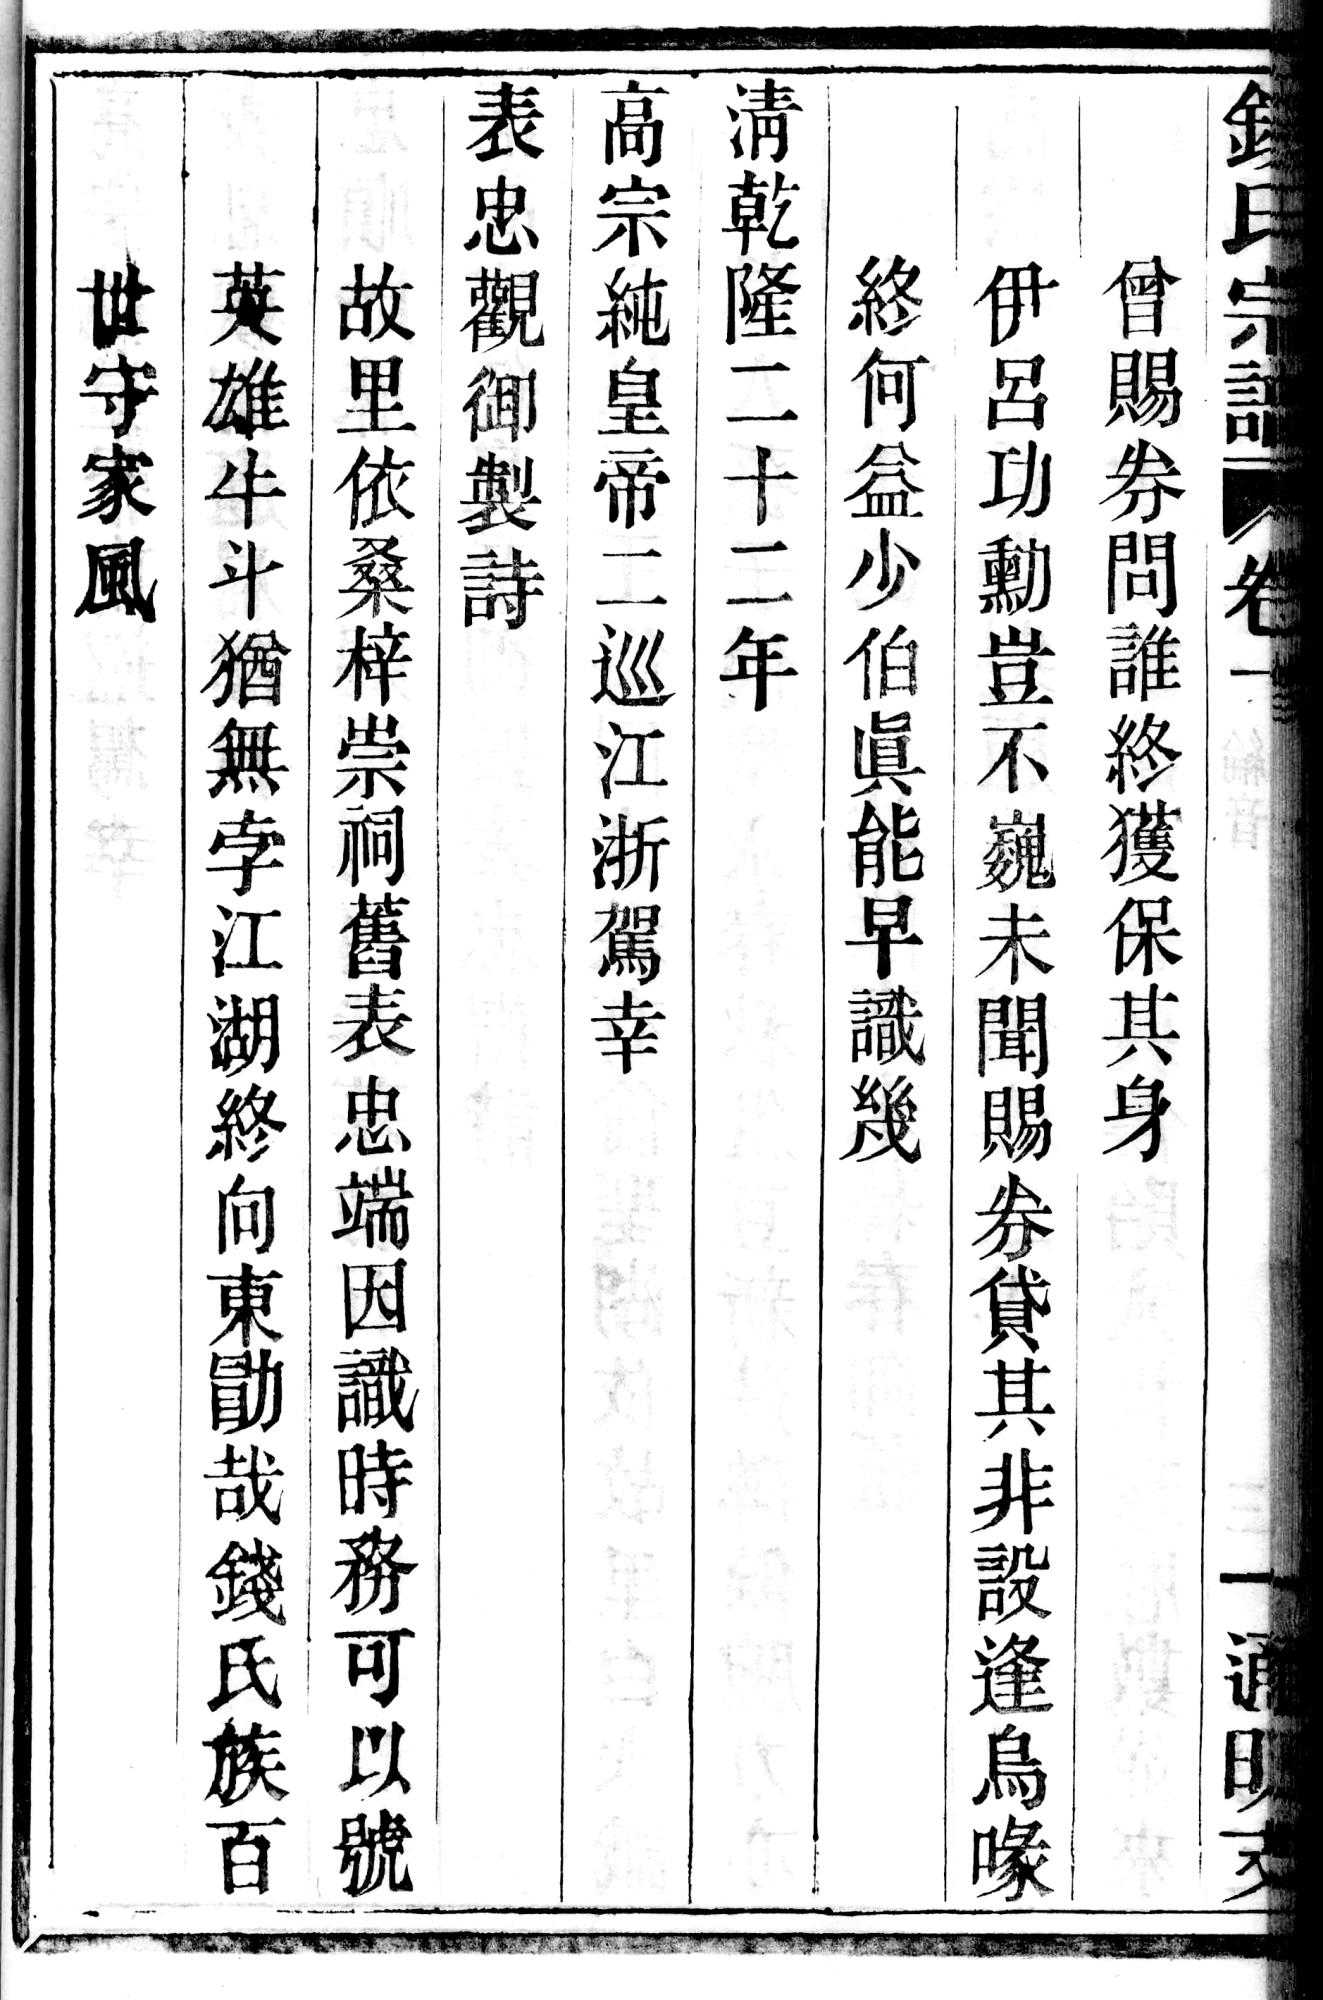 錢氏宗譜 卷一 綸音 三 一 通明文
曾賜券問誰終獲保其身
伊呂功勳豈不巍未聞賜券貸其非設逢烏喙
終何益少伯眞能早識幾
淸乾隆二十二年
高宗純皇帝二巡江浙駕幸
表忠觀御製詩
故里依桑梓崇祠舊表忠端因識時務可以號
英雄牛斗猶無孛江湖終向東勖哉錢氏族百
世守家風